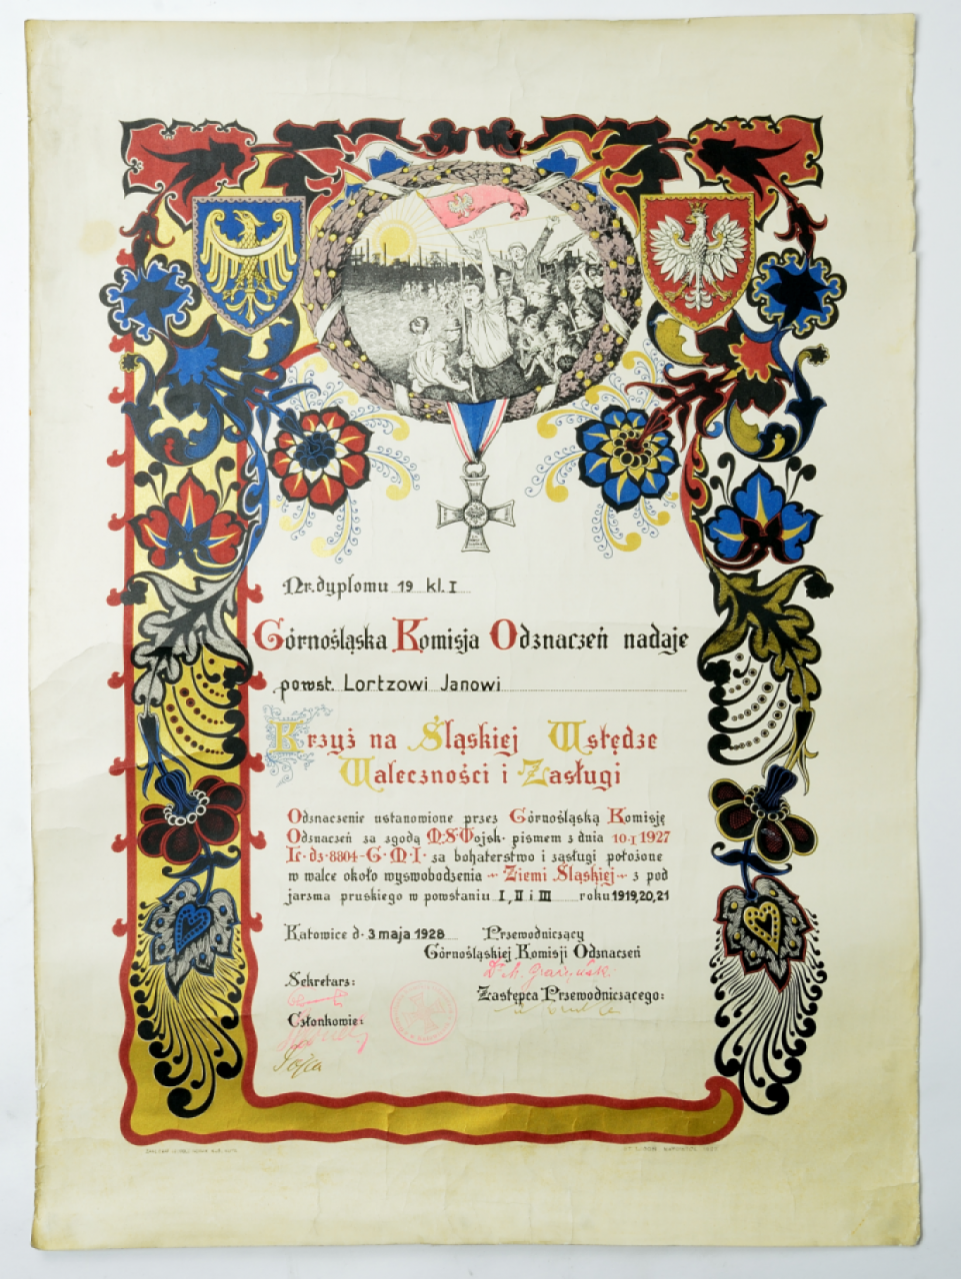 Nr. dyplomu 19 kl. I
Górnośląska Komisja Odznaczeń nadaje
powst. Lortzowi Janowi
Krzyż na Śląskiej Wstędze
Waleczności i Zasługi
Odznaczenie ustanowione przez Górnośląską Komisję
Odznaczeń za zgodą M.S.Wojsk. pismem z dnia 10.I 1927
L. dz. 8804-G.M.I. za bohaterstwo i zasługi położone
w walce około wyswobodzenia - Ziemi Śląskiej - z pod
jarzma pruskiego w powstaniu I, II i III roku 1919,20,21
Katowice d. 3 maja 1928 Przewodniczący
Górnośląskiej Komisji Odznaczeń
Sekretarz:
Zastępca Przewodniczącego:
Członkowie: